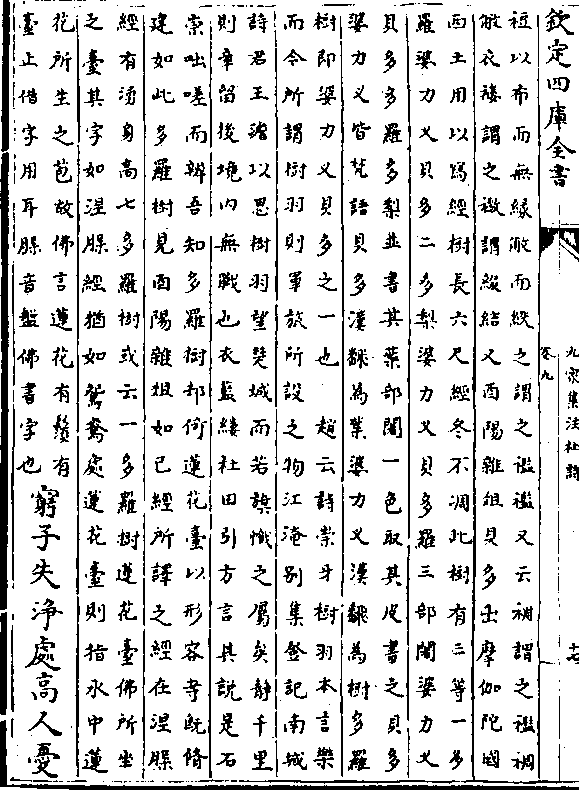 欽定四庫全書
九家集注杜詩
卷九
短以布而無緣敝而紩之謂之襤襤又云裯謂之襤裯
敝衣褸謂之緻謂緩結又酉陽雜俎貝多出摩伽陀國
西土用以寫經樹長六尺經冬不凋此樹有三等一多
羅婆力义貝多二多梨婆力义貝多羅三部闍婆力义
貝多多羅多梨並書其葉部闍一色取其皮書之貝多
婆力义皆梵語貝多漢飜為葉婆力义漢飜為樹多羅
樹即婆力义貝多之一也　趙云詩崇牙樹羽本言樂
而今所謂樹羽則軍旅所設之物江淹别集登記南城
詩君王澹以思樹羽望楚城而若旗幟之屬矣静千里
則章留後境内無戰也衣藍縷社田引方言其說是石
崇咄嗟而辨吾知多羅樹却何蓮花臺以形容寺既脩
建如此多羅樹見酉陽雜俎如已經所譯之經在涅槃
經有湧身高七多羅樹或云一多羅樹蓮花臺佛所坐
之臺其字如涅槃經猶如鴛鴦處蓮花臺則指水中蓮
花所生之苞故佛言蓮花有鬚有
臺止借字用耳槃音盤佛書字也窮子失浄處髙人憂